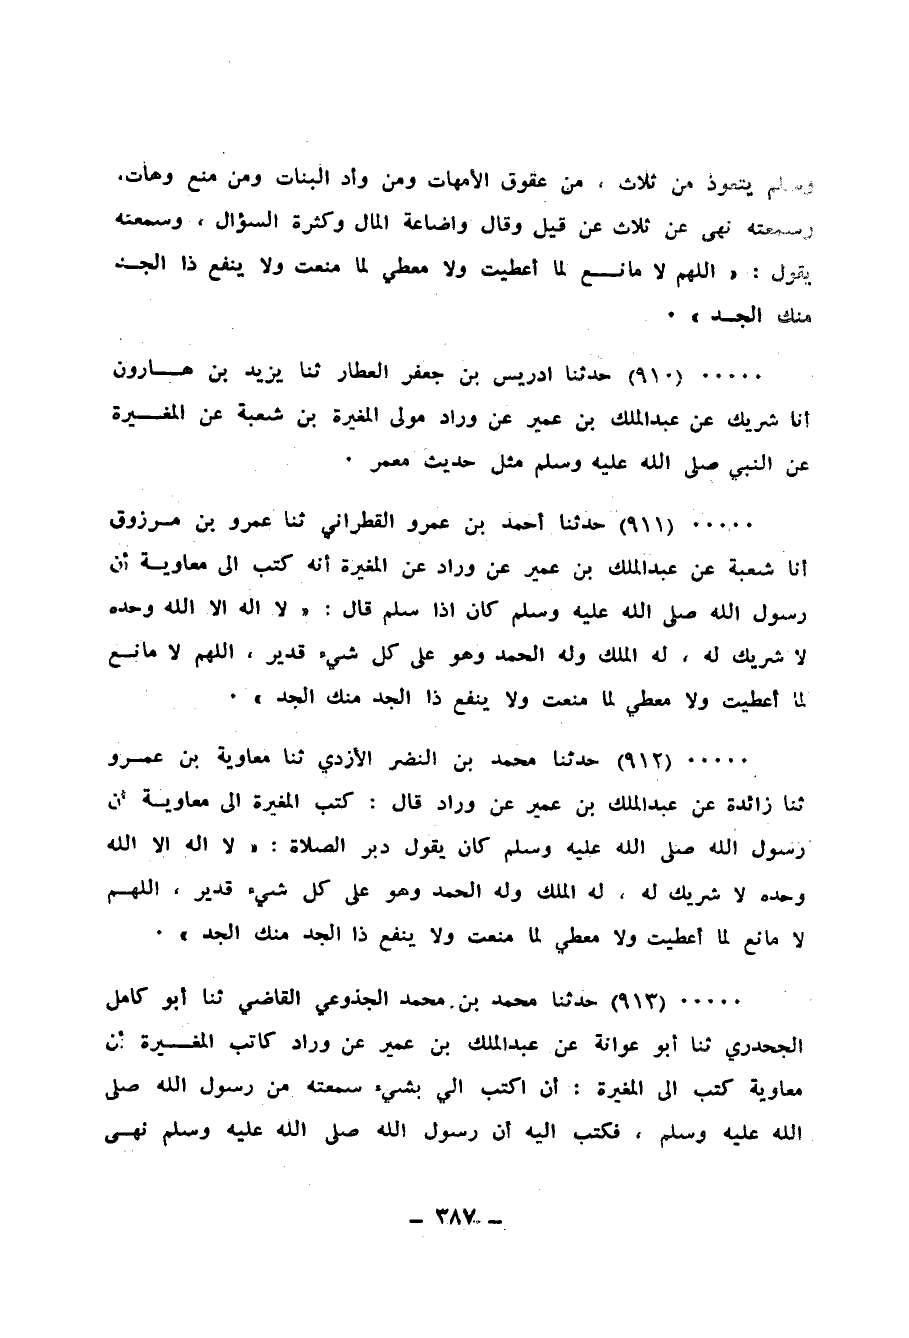 وسلم يتعوذ من ثلاث ، من عقوق الأمهات ومن وأد البنات ومن منع وهات.
وسمعته نهى عن ثلاث عن قيل وقال واضاعة المال وكثرة السؤال ، وسمعته
يقول : « اللهم لا مانـــع لما أعطيت ولا معطي لما منعت ولا ينفع ذا الجــد
منك الجــد » ·
····· (٩١٠) حدثنا ادريس بن جعفر العطار ثنا يزيد بن هـــارون
أنا شريك عن عبدالملك بن عمير عن وراد مولى المغيرة بن شعبة عن المغـــيرة
عن النبي صلى الله عليه وسلم مثل حديث معمر ·
····· (٩١١) حدثنا أحمد بن عمرو القطراني ثنا عمرو بن مـرزوق
أنا شعبة عن عبدالملك بن عمير عن وراد عن المغيرة أنه كتب الى معاويــة أن
رسول الله صلى الله عليه وسلم كان اذا سلم قال : « لا اله الا الله وحده
لا شريك له ، له الملك وله الحمد وهو على كل شيء قدير ، اللهم لا مانــع
لما أعطيت ولا معطي لما منعت ولا ينفع ذا الجد منك الجد » ·
····· (٩١٢) حدثنا محمد بن النضر الأزدي ثنا معاوية بن عمــرو
ثنا زائدة عن عبدالملك بن عمير عن وراد قال : كتب المغيرة الى معاويــة أن
رسول الله صلى الله عليه وسلم كان يقول دبر الصلاة : « لا اله الا الله
وحده لا شريك له ، له الملك وله الحمد وهو على كل شيء قدير ، اللهــم
لا مانع لما أعطيت ولا معطي لما منعت ولا ينفع ذا الجد منك الجد » ·
····· (٩١٣) حدثنا محمد بن محمد الجذوعي القاضي ثنا أبو كامل
الجحدري ثنا أبو عوانة عن عبدالملك بن عمير عن وراد كاتب المغـــيرة أن
معاوية كتب الى المغيرة : أن اكتب الي بشيء سمعته من رسول الله صلى
الله عليه وسلم ، فكتب اليه أن رسول الله صلى الله عليه وسلم نهــى
– ٣٨٧ –